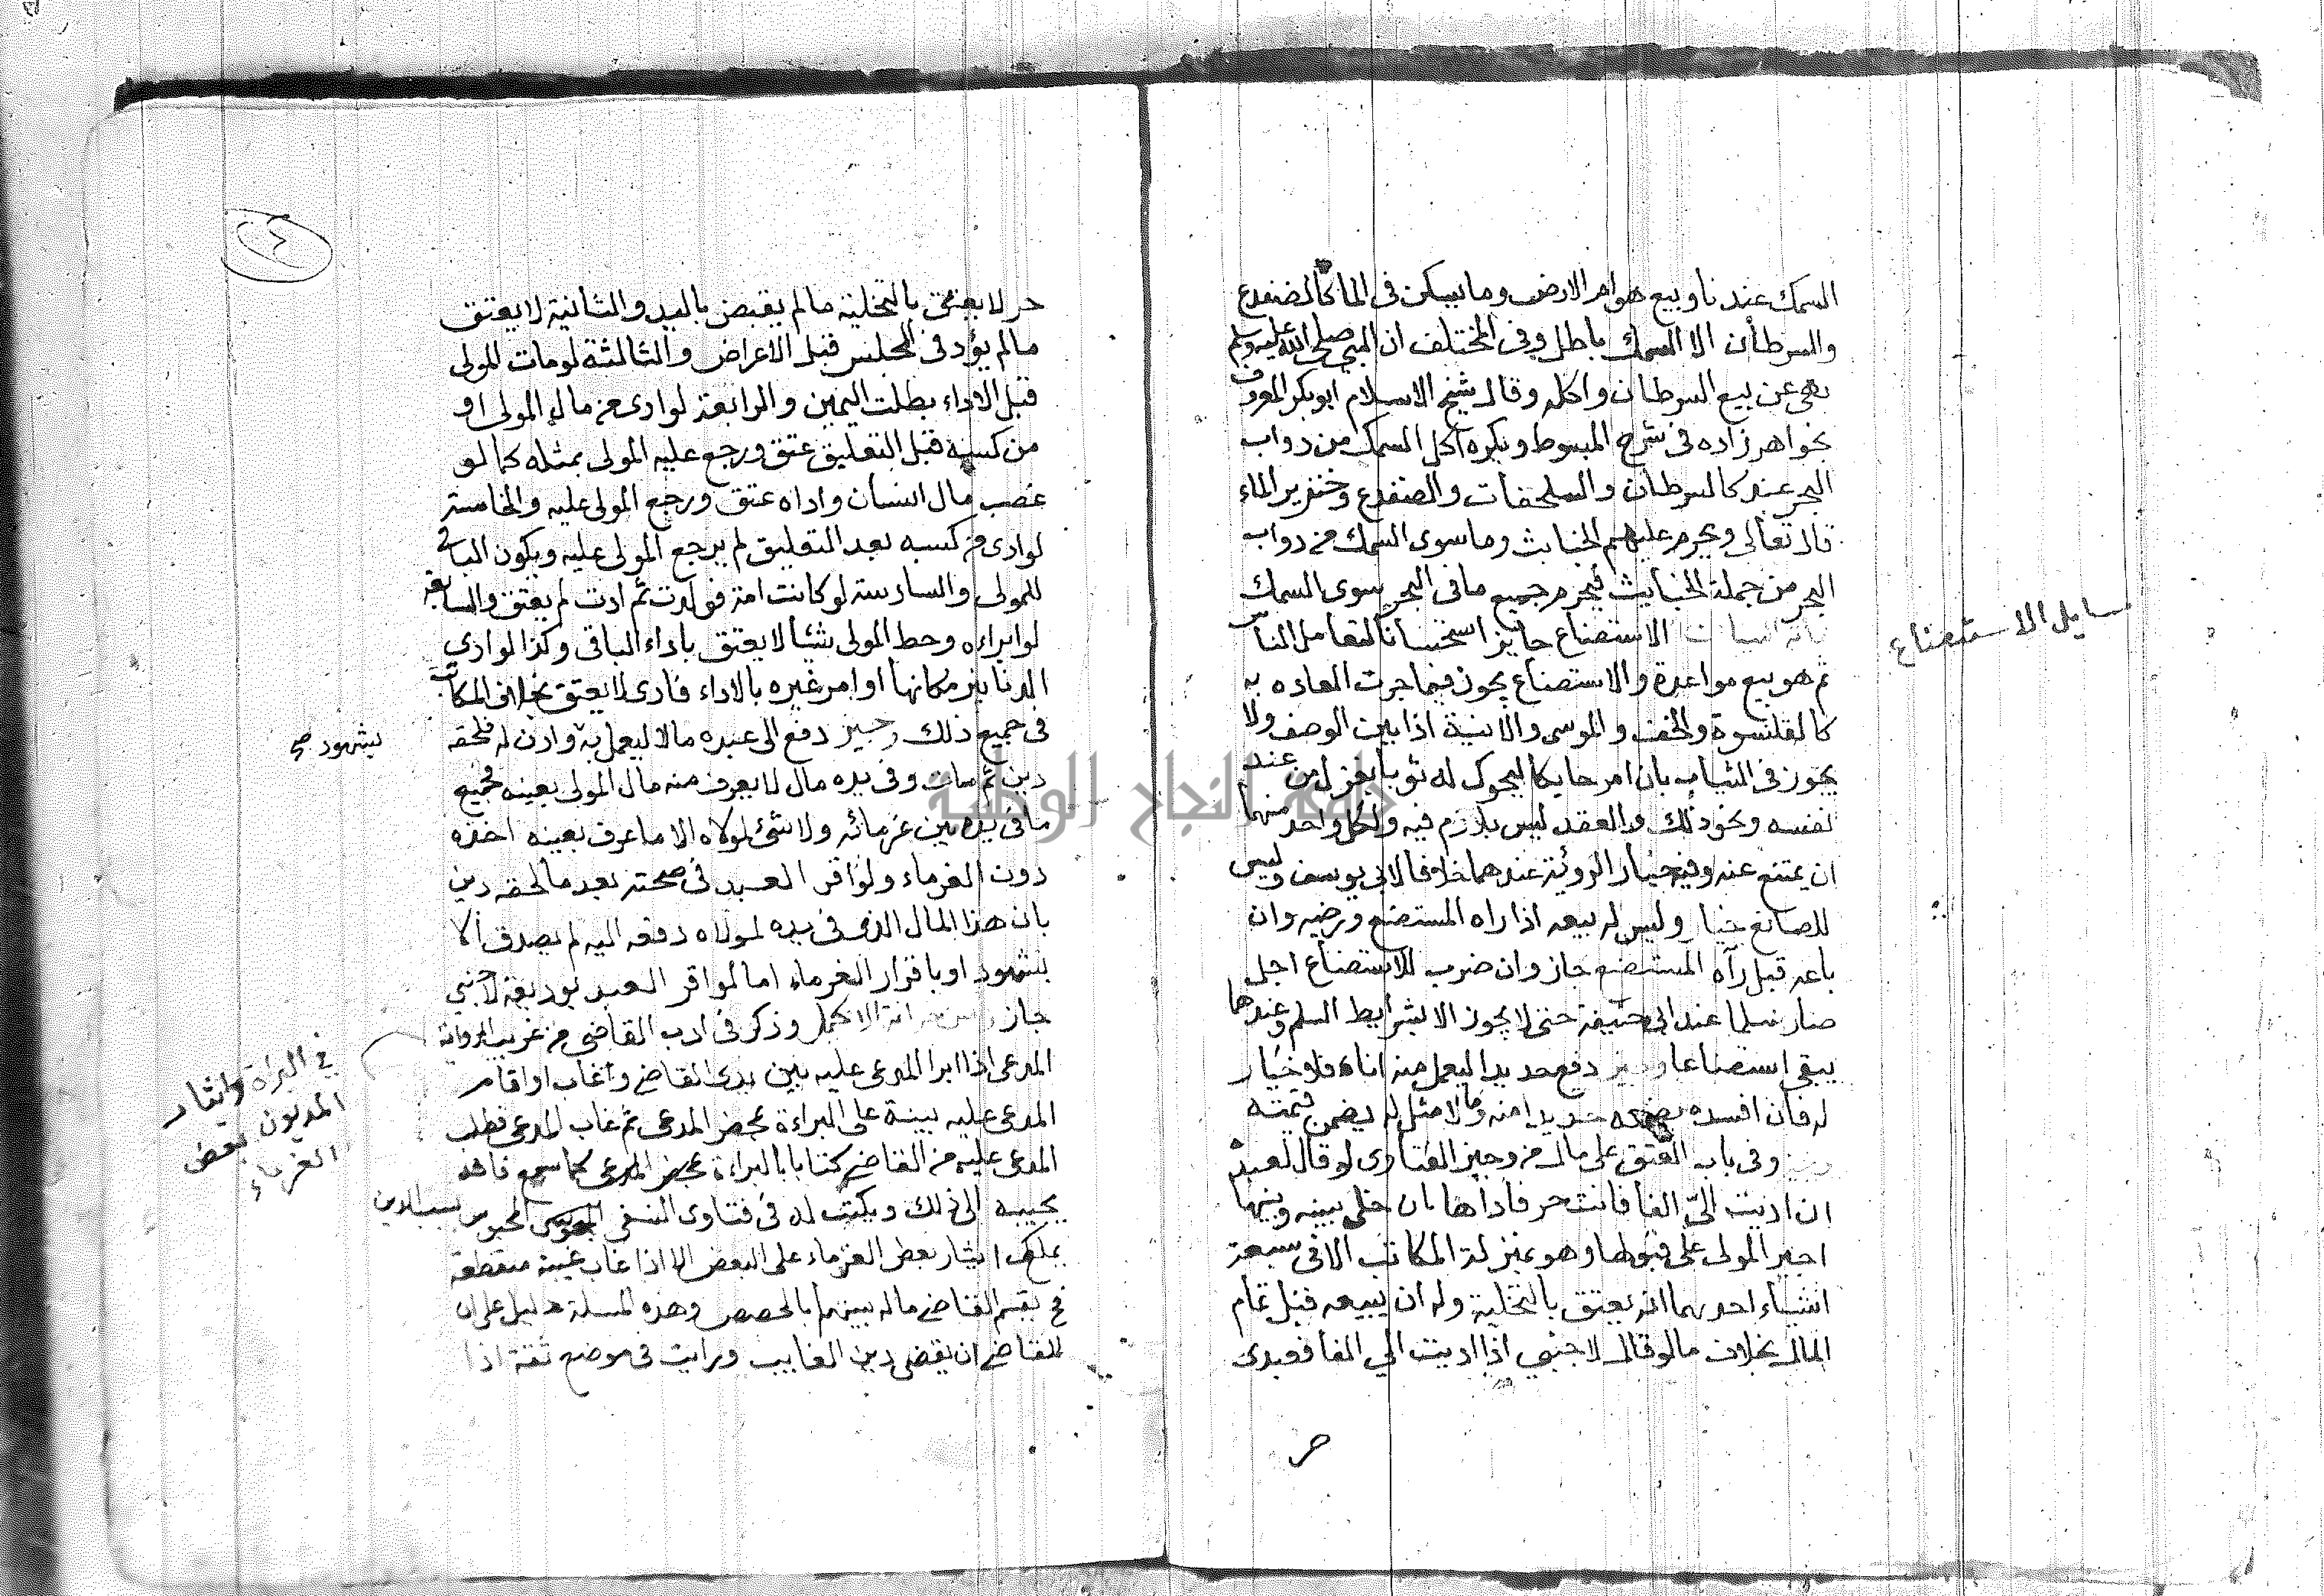 السمك عندنا وبيع هوام الارض وما يسكن فى الماء كالضفدع
والسرطان الا السمك باطل وفى المختلف ان النبى صلى الله عليه وسلم
نهى عن بيع السرطان واكله وقال شيخ الاسلام ابو بكر المعروف
بخواهر زاده فى شرح المبسوط ويكره اكل السمك من دواب
البحر عند كالسرطان والسلحفات والضفدع وخنزير الماء
قال تعالى ويحرم عليهم الخبايث وما سوى السمك من دواب
البحر من جملة الخبايث فيحرم جميع ما فى البحر سوى السمك
الاستصناع جايز استحسانا لتعامل الناس
ثم هو بيع مواعدة والاستصناع يجوز فيما جرت العاده به
كالقلنسوة والخف والموسى والانية اذا بين الوصف ولا
يجوز فى الثياب بان امر حايكا ليحوك له ثوبا بغزل من عند
نفسه ونحو ذلك والعقد ليس بلازم فيه ولكل واحد منهما
ان يمتنع عنه وفيه خيار الروئية عندهما خلافا لابى يوسف وليس
للصانع خيار وليس له بيعه اذا راه المستصنع ورضيه وان
باعه قبل رآه المستصنع جاز وان ضرب للاستصناع اجل
صار سلما عند ابى حنيفة حتى لا يجوز الا بشرايط السلم وعندهما
يبقى استصناعا دفع حديدا ليعمل منه اناء فلا خيار
له فان افسده حديدا منه وما لا مثل له يضمن قيمته
وفى باب العتق على مال من وجيز الفتاوى لو قال لعبده
ان اديت الىّ الفا فانت حر فاداها بان خلى بينه وبينها
اجبر المولى على قبولها وهو بمنزلة المكاتب الا فى سبعة
اشياء احديهما انه يعتق بالتخلية وله ان يبيعه قبل تمام
المال بخلاف ما لو قال لاجنبى اذا اديت الى الفا فعبدى
حر
سايل الاستصناع
حر لا يعتق بالتخلية ما لم يقبض باليد والثانية لا يعتق
ما لم يؤد فى المجلس قبل الاعراض والثالثة لو مات المولى
قبل الاداء بطلت اليمين والرابعة لو ادى من مال المولى او
من كسبه قبل التعليق عتق ورجع عليه المولى بمثله كما لو
غصب مال انسان واداه عتق ورجع المولى عليه والخامسة
لو ادى من كسبه بعد التعليق لم يرجع المولى عليه ويكون الباقى
للمولى والسادسة لو كانت امة فولدت ثم ادت لم يعتق والسابعة
لو ابراءه وحط المولى شيئا لا يعتق باداء الباقى وكذا لو ادى
الدنانير مكانها او امر غيره بالاداء فادى لا يعتق بخلاف المكاتب
فى جميع ذلك وجيز دفع الى عبده مالا ليعمل به واذن له فلحقه
دين ثم مات وفى يده مال لا يعرف منه مال المولى بعينه فجميع
ما فى يده بين غرمائه ولا شئ لمولاه الا ما عرف بعينه اخذه
دون الغرماء ولو اقر العبد فى صحته بعد ما لحقه دين
بان هذا المال الذى فى يده لمولاه دفعه اليه لم يصدق الا
بشهود او باقرار الغرماء اما لو اقر العبد بوديعة لاجنبى
جاز الاكمل وذكر فى ادب القاضى من غريب الرواية
المدعى اذا ابرا المدعى عليه بين يدى القاضى وغاب او اقام
المدعى عليه بينة على البراءة بمحضر المدعى ثم غاب المدعى فطلب
المدعى عليه من القاضى كتابا بالبراءة بمحضر المدعى كما سمع فانه
يجيبه الى ذلك ويكتب له فى فتاوى النسفى المحبوس بسبب الدين
يملك ايثار بعض الغرماء على البعض الا اذا غاب غيبة منقطعة
فح يقسم القاضى ماله بينهم بالحصص وهذه المسلة دليل على ان
للقاضى ان يقضى دين الغايب ورايت فى موضع ثقة اذا
بشهود صح
فى البراة وايثار
المديون بعض
الغرماء